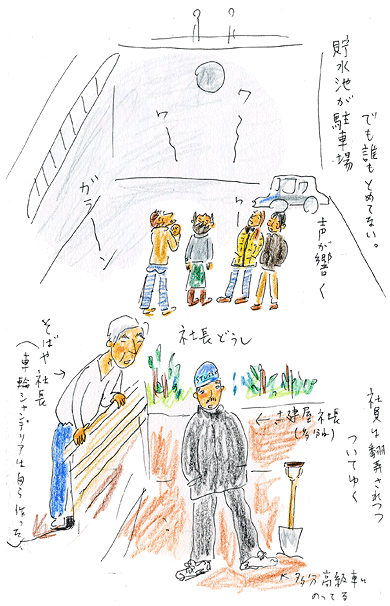 貯水池が駐車場
でも誰もとめてない。
ワ
ワ
ガラーン
ワー
声が響く
社長どうし
そばや社長
(車輪シャンデリアは自ら作った。)
建屋社長
社員は翻弄されつつ
ついてゆく
多分高級車に
のってる